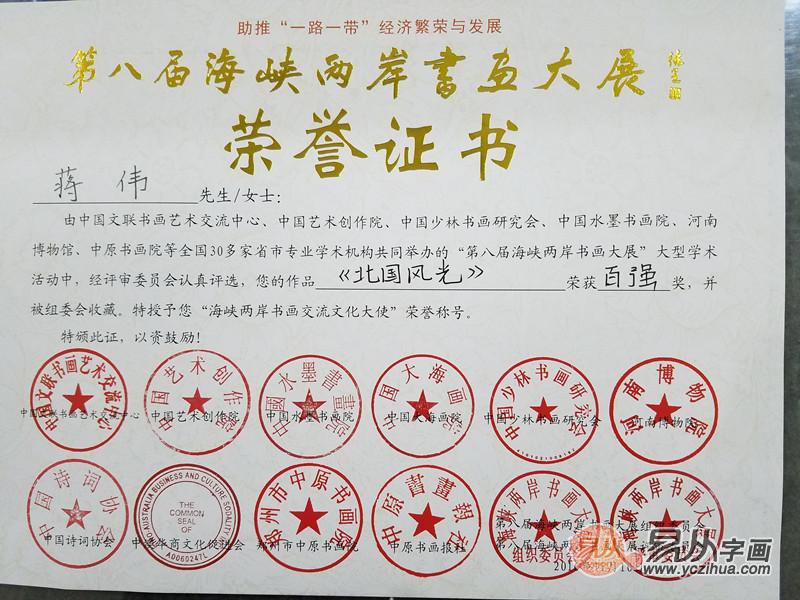 助推“一路一带”经济繁荣与发展
第八届海峡两岸書画大展
荣誉证书
蒋 伟 先生/女士：
由中国文联书画艺术交流中心、中国艺术创作院、中国少林书画研究会、中国水墨书画院、河南
博物馆、中原书画院等全国30多家省市专业学术机构共同举办的“第八届海峡两岸书画大展”大型学术
活动中，经评审委员会认真评选，您的作品《北国风光》荣获百强奖，并
被组委会收藏。特授予您“海峡两岸书画交流文化大使”荣誉称号。
特颁此证，以资鼓励！
中国文联书画艺术交流中心
中国艺术创作院
中國水墨書畫院
中国大海画院
中国少林书画研究会
河南博物院
中国文联书画艺术交流中心 中国艺术创作院 中国水墨书画院 中国大海画院 中国少林书画研究会 河南博物院
中国诗词协会
THE COMMON SEAL OF
A0060247L
郑州市中原书画院
中原書畫報社
海峡两岸书画大
组织委员会
海峡两岸书画大
中国诗词协会 中澳华商文化促进会 郑州市中原书画院 中原书画报社
第八届海峡两岸书画大展组织委员会
易从字画
www.yczihua.com